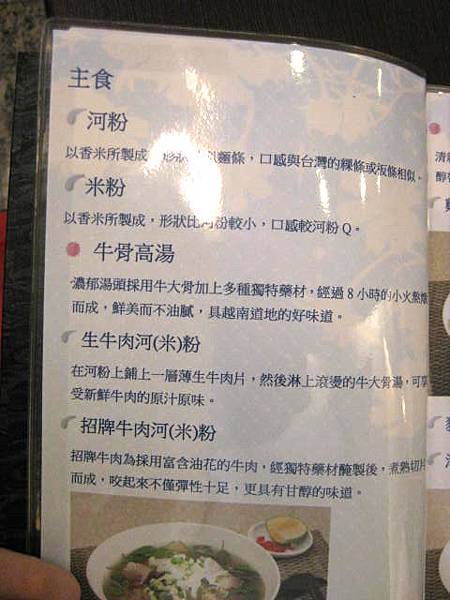 主食
河粉
以香米所製成 形狀 麵條，口感與台灣的粿條或粄條相似。
米粉
以香米所製成，形狀比河粉較小，口感較河粉Q。
牛骨高湯
濃郁湯頭採用牛大骨加上多種獨特藥材，經過8小時的小火熬燉
而成，鮮美而不油膩，具越南道地的好味道。
生牛肉河(米)粉
在河粉上鋪上一層薄生牛肉片，然後淋上滾燙的牛大骨湯，可享
受新鮮牛肉的原汁原味。
招牌牛肉河(米)粉
招牌牛肉為採用富含油花的牛肉，經獨特藥材醃製後，煮熟切片
而成，咬起來不僅彈性十足，更具有甘醇的味道。